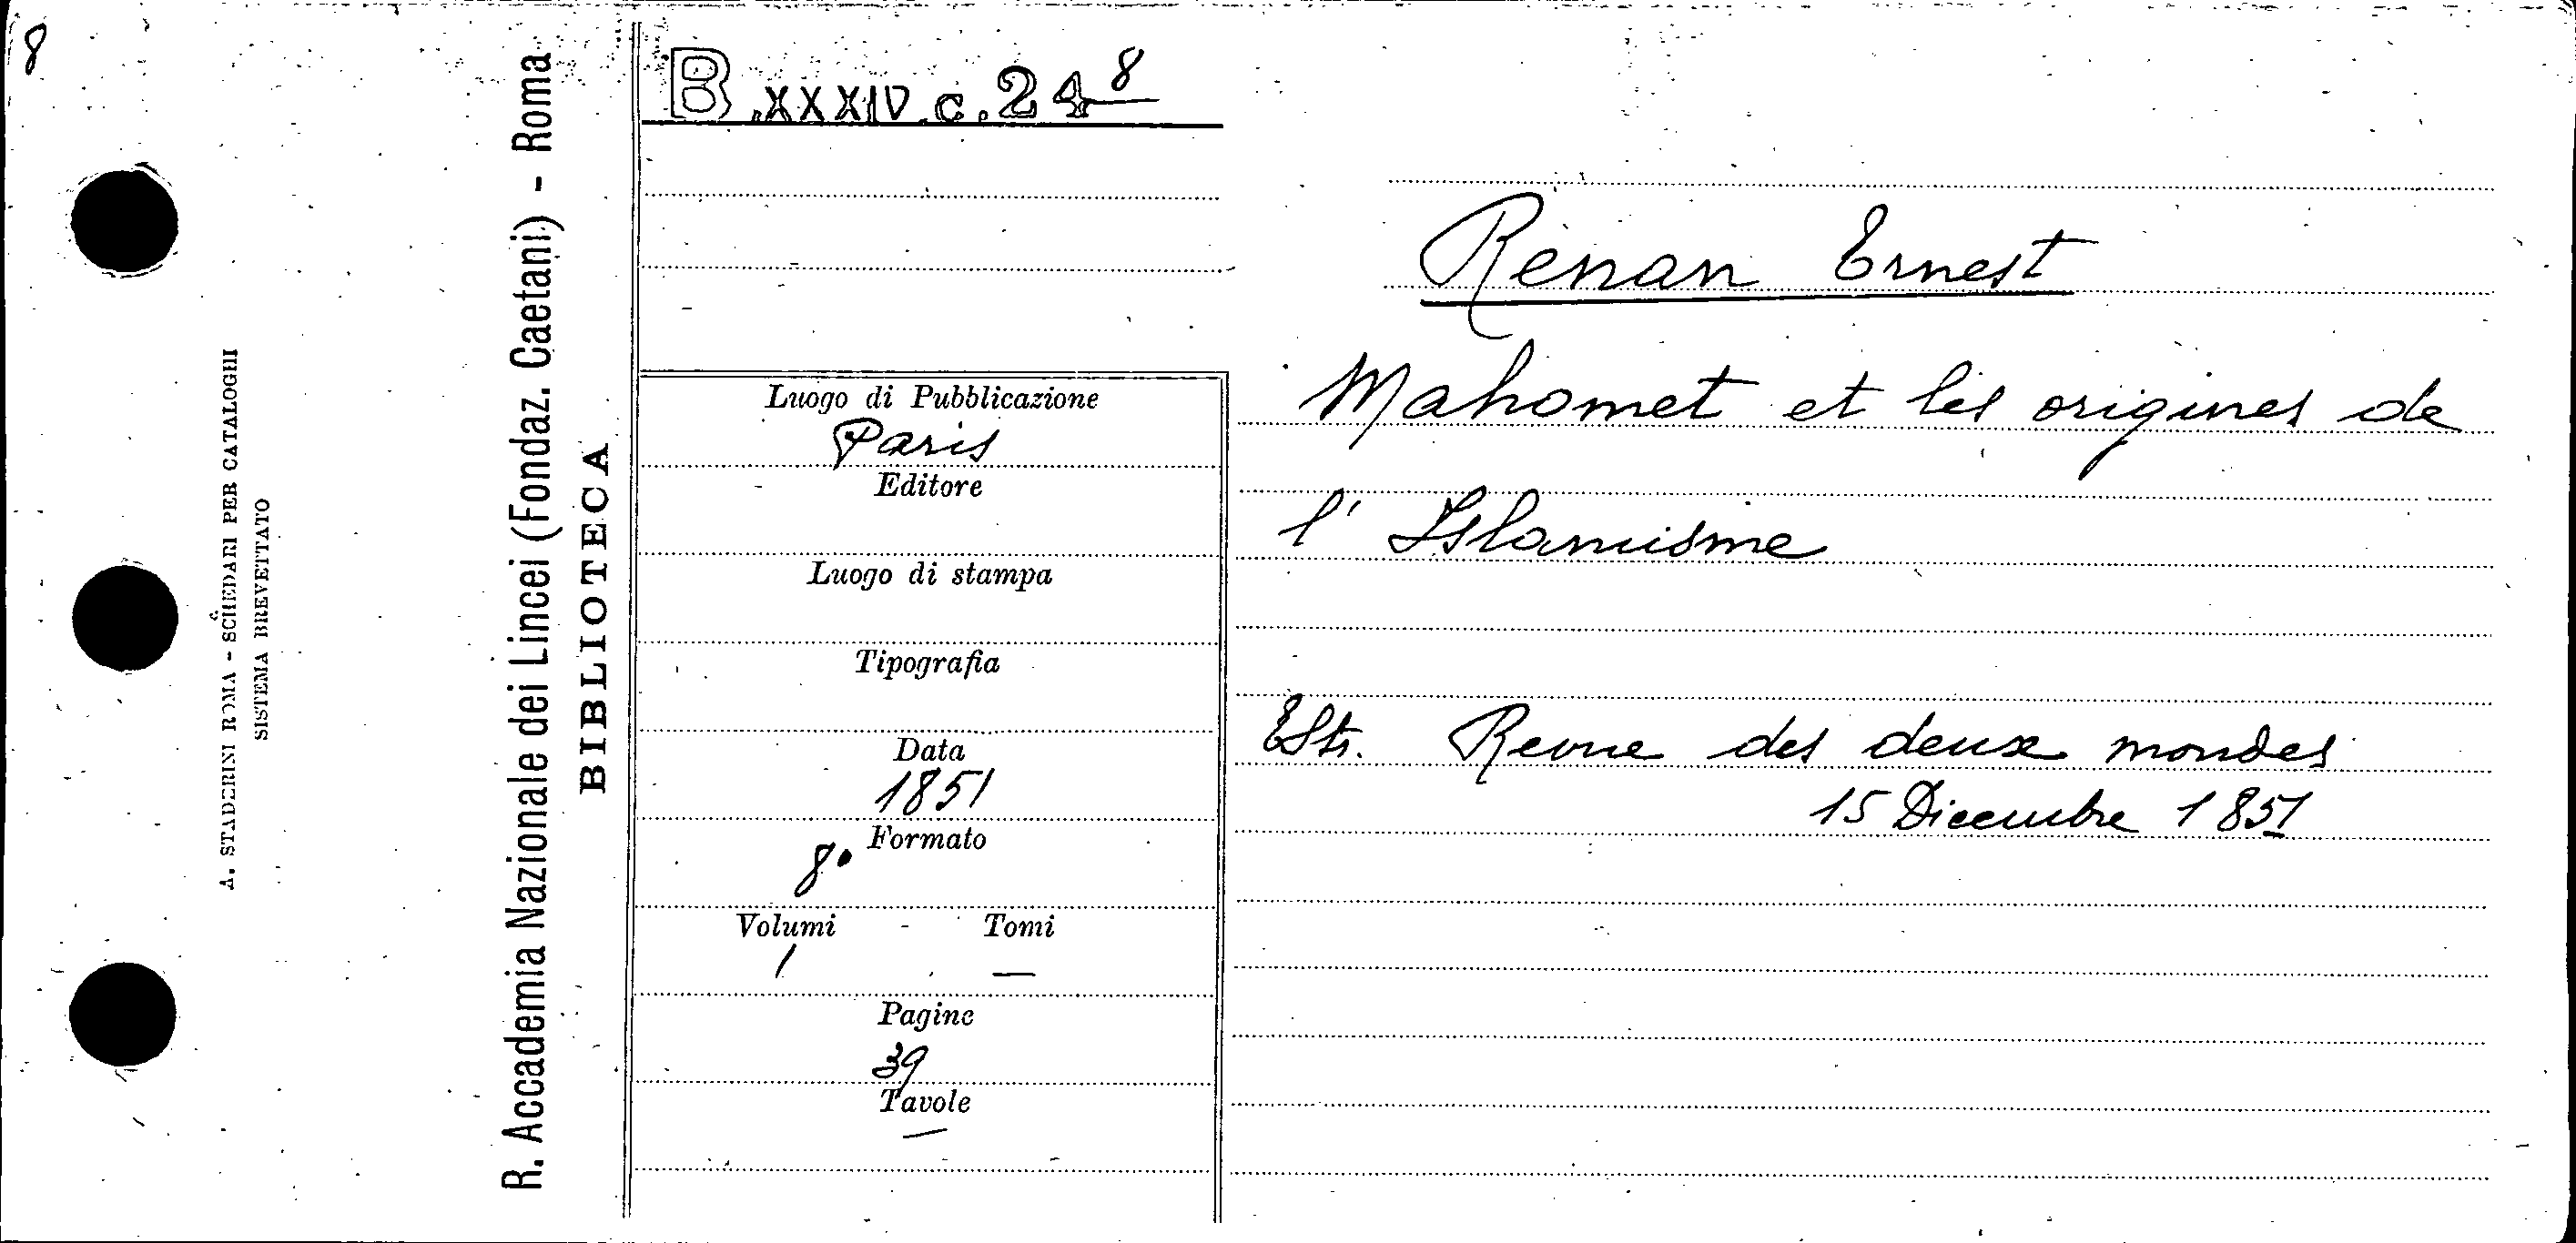 8
A. STADERINI ROMA - SCHEDARI PER CATALOGHI
SISTEMA BREVETTATO
R. Accademia Nazionale dei Lincei (Fondaz. Caetani) - Roma
BIBLIOTECA
B.XXXIV.c.24 8
Luogo di Pubblicazione
Paris
Editore
Luogo di stampa
Tipografia
Data
1851
Formato
8°
Volumi - Tomi
1 —
Pagine
39
Tavole
—
Renan Ernest
Mahomet et les origines de
l' Islamisme
Estr. Revue des deux mondes
15 Dicembre 1851